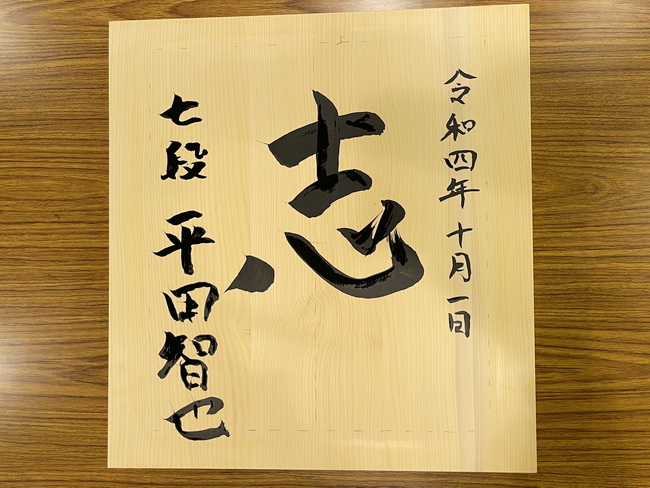 令和四年十月一日
志
七段 平田智也